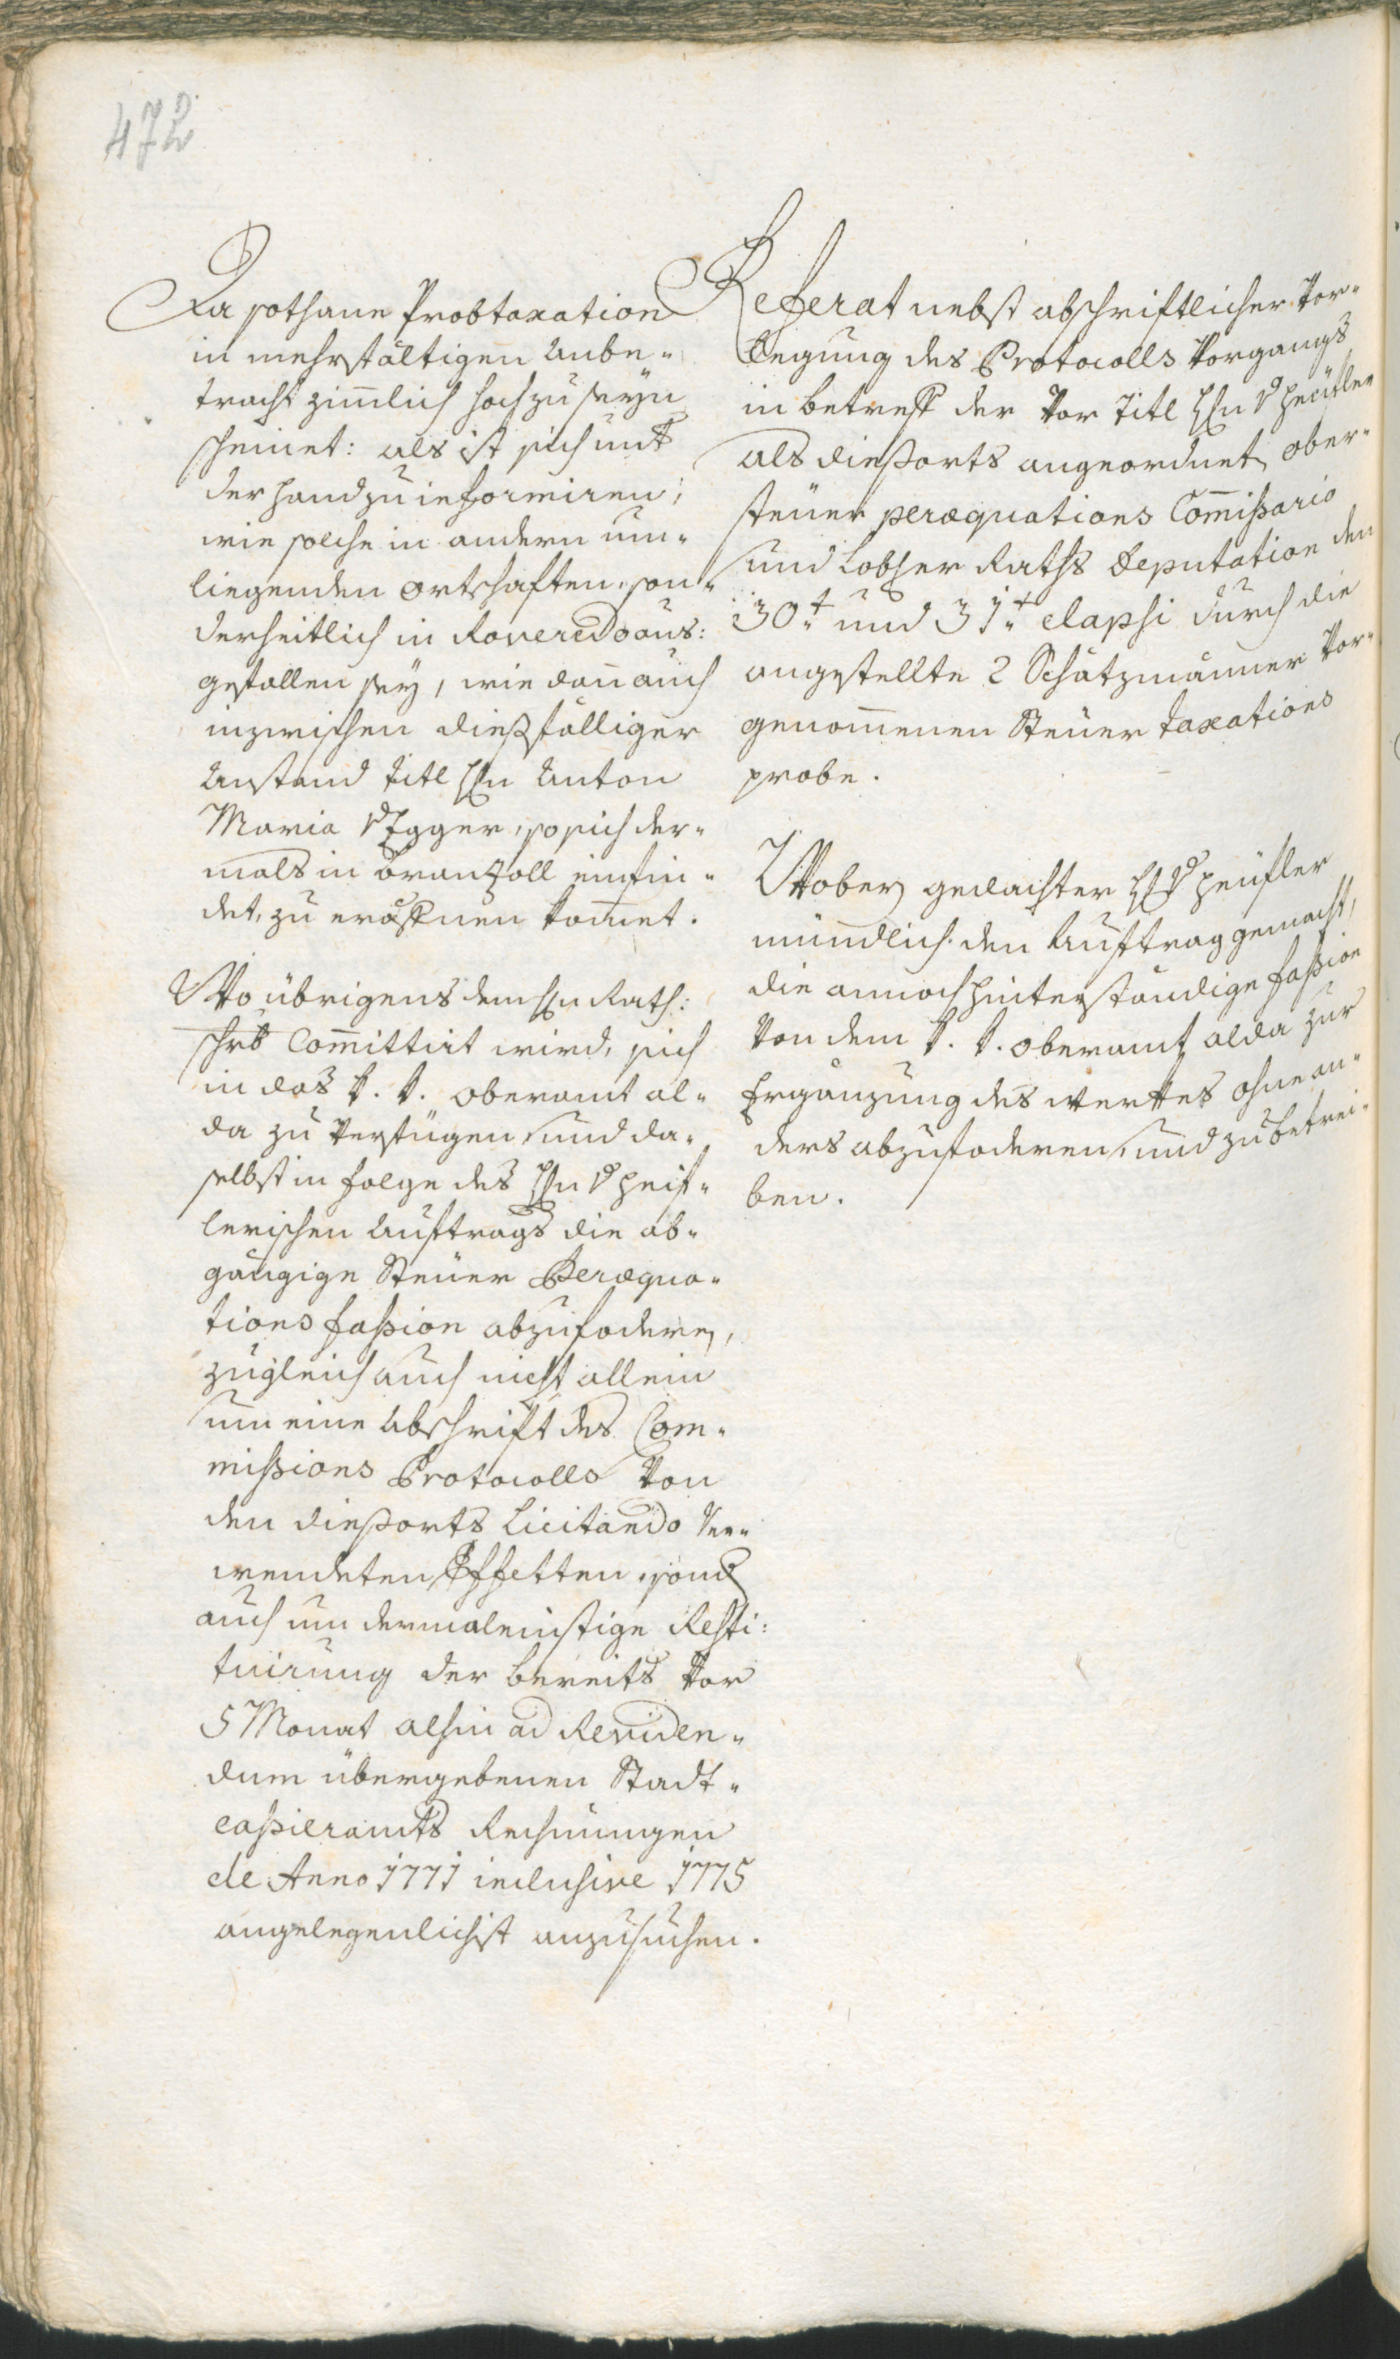 472
Da sothane Probtaxation
in mehrfältigen Anbe-
tracht zimlich hoch zu seyn
scheinet: als ist sich unt
der Hand zu informiren;
wie solche in andern um-
liegenden Ortschaften, son-
derheitlich in Roveredo aus:
gefallen sey, wie dan auch
inzwischen dießfälliger
Anstand Titl Hn Anton
Maria v Egger, so sich der-
mals in Branzoll einfin-
det, zu eröffnen komet.
Wo übrigens dem Hn Rath:
schrb Comittirt wird, sich
in das k. k. Oberamt al-
da zu verfügen, und da-
selbst in Folge des Hn v Heif-
lerischen Auftrags die ab-
gängige Steuer Peræqua-
tions Faßion abzufoderen,
zugleich auch nicht allein
um eine Abschrift des Com-
mißions Protocolls von
den dießorts Licitando ver-
wendeten Effetten, sond
auch um dermaleinstige Resti:
tuirung der bereits vor
5 Monat alhin ad Reviden-
dum übergebenen Stadt-
caßieramts Rechnungen
de Anno 1771 inclusive 1775
angelegenlichist anzusuchen.
Referat nebst abschriftlicher Vor-
legung des Protocolls Vorgangs
in betreff der vor Titl Hn v Heufler
als dießorts angeordnet ober-
steuer peræquations Comißario
und Lobher Raths Deputation den
30t und 31t elapsi durch die
angestellte 2 Schätzmänner vor-
genomenen Steuer taxations
probe.
Wober gedachter H v Heufler
mündlich den Auftrag gemacht,
die annoch hinterständige Faßion
von dem k. k. oberamt alda zur
Ergänzung des Werkes ohne an-
ders abzufoderen, und zu betrei-
ben.